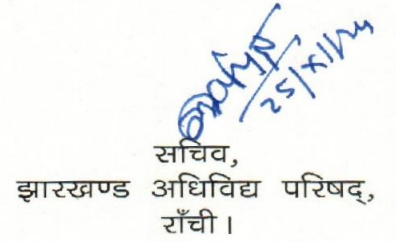 25/XI/24
सचिव,
झारखण्ड अधिविद्य परिषद्,
राँची।